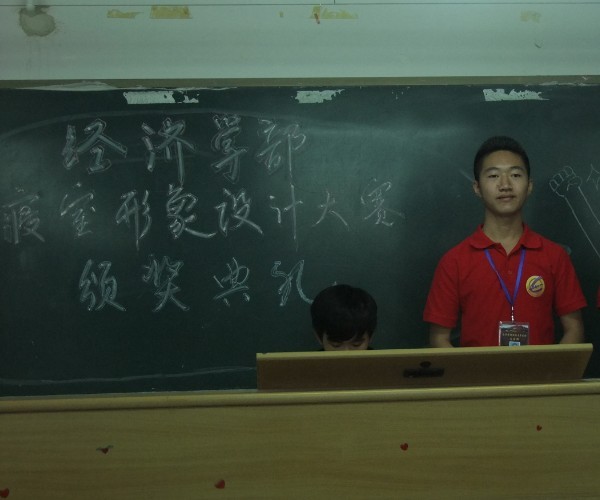 经济学部
寝室形象设计大赛
颁奖典礼